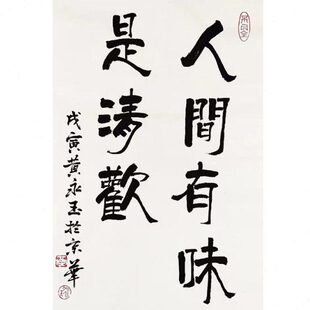 人間有味
是清歡
戊寅黃永玉於京華